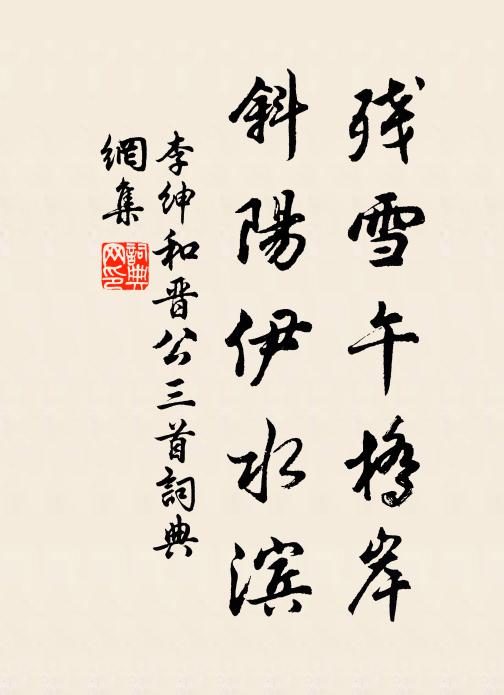 残雪午橋岸
斜陽伊水滨
李紳和晋公三首詞典
網集
詞典网印